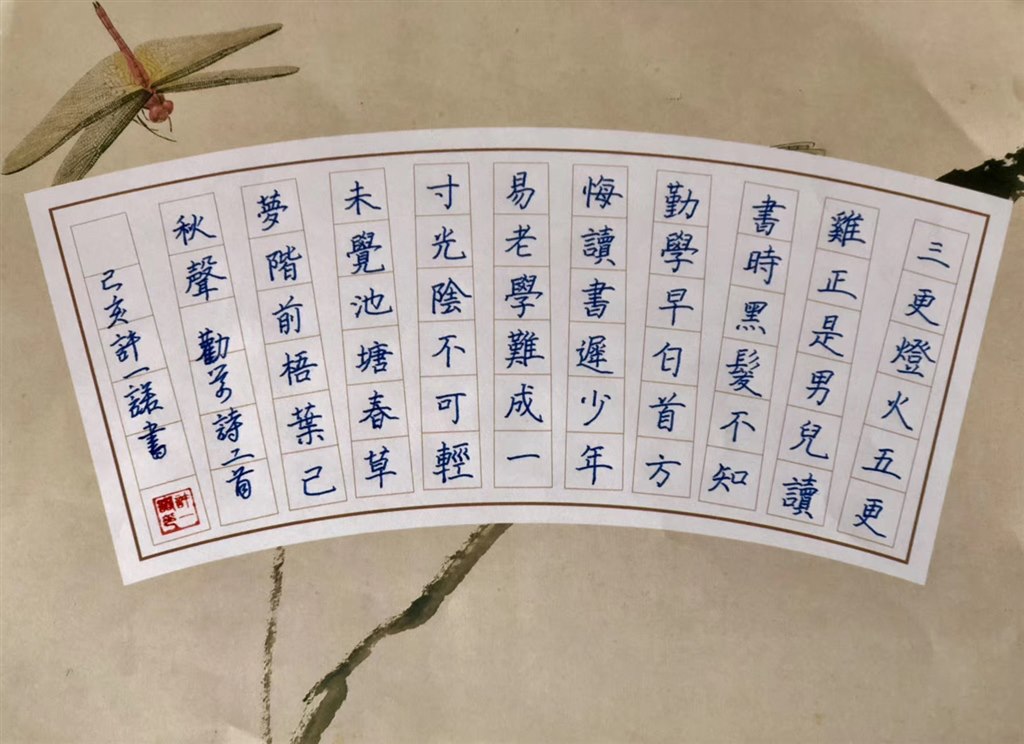 三更燈火五更
雞正是男兒讀
書時黑髮不知
勤學早白首方
悔讀書遲少年
易老學難成一
寸光陰不可輕
未覺池塘春草
夢階前梧葉已
秋聲 勸學詩二首
己亥許一諾書